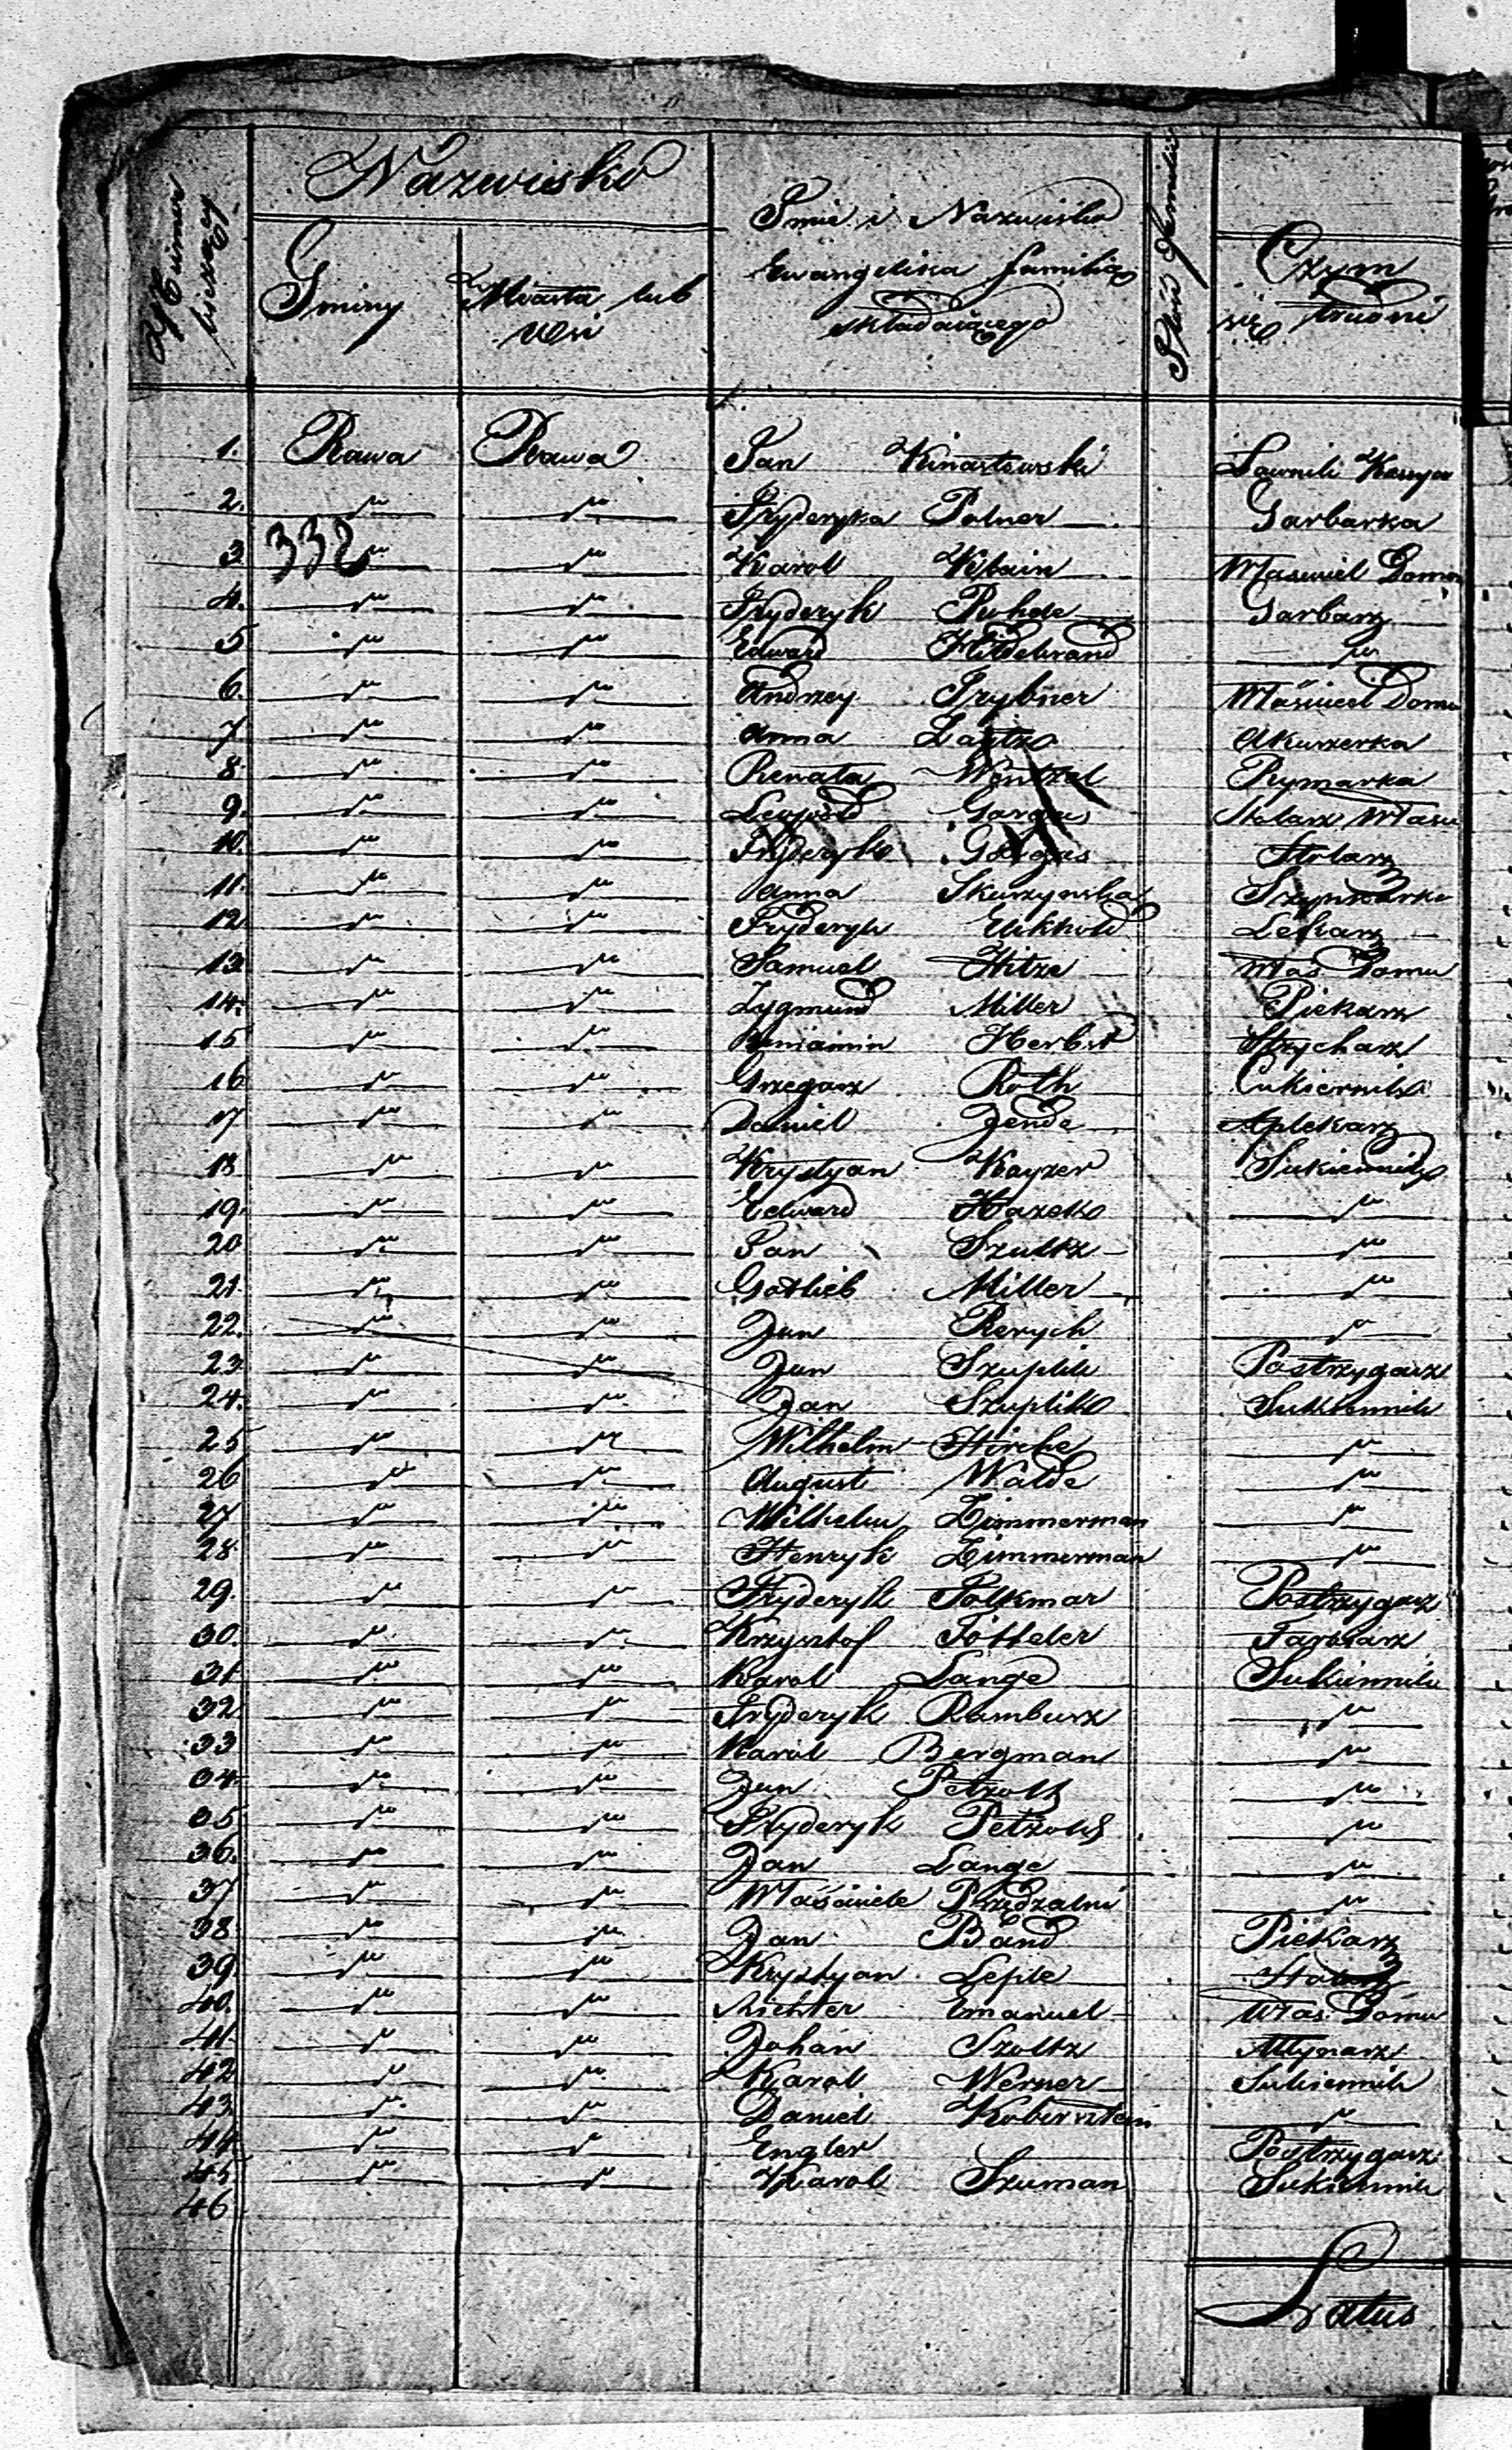 Numer bieżący
Nazwisko
Gminy
Miasta lub Wsi
Imie i Nazwisko
Ewangelika familią
składaiącego
Familii
Czym
się trudni
1. Rawa Rawa Jan Kinastowski Ławnik Kassyer
2. " " Fryderyka Polner Garbarka
332
3. " " Karol Klain Właściciel Domu
4. " " Fryderyk Ruhde Garbarz
5 " " Edward Hildebrand "
6. " " Andrzey Frybner Właściciel Domu
7 " " Anna Akuszerka
8. " " Renata Wentzel Rymarka
9. " " Leopold Gargas Stolarz Właści
10. " " Fryderyk Gargas Stolarz
11. " " Anna Skurzynska Szynkarka
12 " " Fryderyk Lekarz
13 " " Samuel Hitze Właś Domu
14. " " Zygmund Miller Piekarz
15 " " Beniamin Herbst Strycharz
16 " " Grzegorz Roth Cukiernik
17 " " Daniel Zende Aptekarz
18 " " Krystyan Kayzer Sukiennik
19. " " Edward Hazek "
20 " " Jan Szultz "
21. " " Gotlieb Miller "
22. " " Jan Rerych "
23. " " Jan Szuplik Postrzygarz
24. " " Jan Szuplik Sukiennik
25 " " Wilhelm Hirche "
26 " " August Walde "
27 " " Wilhelm Zimmerman "
28. " " Henryk Zimmerman "
29. " " Fryderyk Folkmar Postrzygarz
30. " " Krzysztof Farbiarz
31 " " Karol Lange Sukiennik
32 " " Fryderyk Ramburz "
33 " " Karol Bergman "
34 " " Jan Petzold "
35 " " Fryderyk Petzold "
36. " " Jan Lange "
37 " " Właściciele Przędzalni "
38 " " Jan Band Piekarz
39. " " Krystyan Leple
40. " " Richter Emanuel Właś: Domu
41 " " Johan Szoltz Młynarz
42 " " Karol Werner Sukiennik
43 " " Daniel Kobersztein "
44 " " Engler Postrzygarz
45 " " Karol Szuman Sukiennik
46
Latus